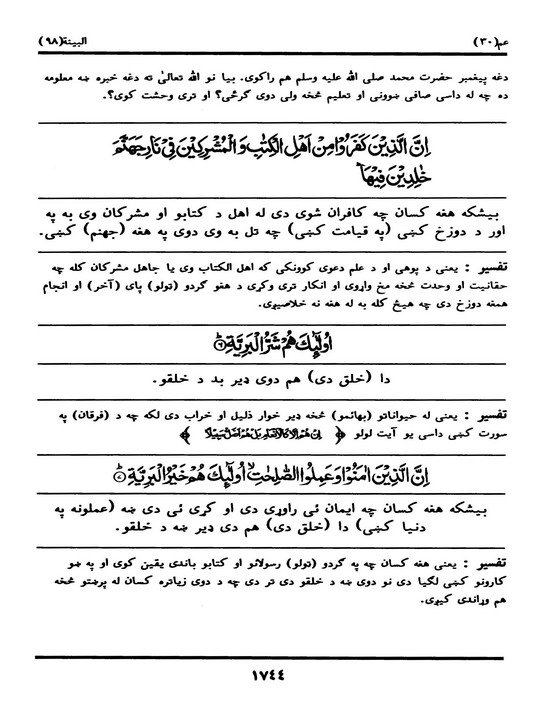 عم(٣٠)
البينة(٩٨)
دغه پيغمبر حضرت محمد صلى الله عليه وسلم هم راكوى. بيا نو الله تعالىٰ ته دغه خبره ښه معلومه
ده چه له داسى صافى ښوونى او تعليم څخه ولى دوى گرځى؟ او ترى وحشت كوى؟.
اِنَّ الَّذِيْنَ كَفَرُوْا مِنْ اَهْلِ الْكِتٰبِ وَ الْمُشْرِكِيْنَ فِىْ نَارِ جَهَنَّمَ
خٰلِدِيْنَ فِيْهَا
بيشكه هغه كسان چه كافران شوى دى له اهل د كتابو او مشركان وى به په
اور د دوزخ كښى (په قيامت كښى) چه تل به وى دوى په هغه (جهنم) كښى.
تفسير : يعنى د پوهى او د علم دعوى كوونكى كه اهل الكتاب وى يا جاهل مشركان كله چه
حقانيت او وحدت څخه مخ واړوى او انكار ترى وكړى د هغو گردو (ټولو) پاى (آخر) او انجام
همغه دوزخ دى چه هيڅ كله به له هغه نه خلاصيږى.
اُولٰٓئِكَ هُمْ شَرُّ الْبَرِيَّةِ ۞
دا (خلق دى) هم دوى ډير بد د خلقو.
تفسير : يعنى له حيواناتو (بهائمو) څخه ډير خوار ذليل او خراب دى لكه چه د (فرقان) په
سورت كښى داسى يو آيت لولو ﴿ اِنْ هُمْ اِلَّا كَالْاَنْعَامِ بَلْ هُمْ اَضَلُّ سَبِيْلًا ﴾
اِنَّ الَّذِيْنَ اٰمَنُوْا وَعَمِلُوا الصّٰلِحٰتِ اُولٰٓئِكَ هُمْ خَيْرُ الْبَرِيَّةِ ۞
بيشكه هغه كسان چه ايمان ئى راوړى دى او كړى ئى دى ښه (عملونه په
دنيا كښى) دا (خلق دى) هم دى ډير ښه د خلقو.
تفسير : يعنى هغه كسان چه په گردو (ټولو) رسولانو او كتابو باندى يقين كوى او په ښو
كارونو كښى لگيا دى نو دوى ښه د خلقو دى تر دى چه د دوى زياتره كسان له پرښتو څخه
هم وړاندى كيږى.
١٧٤٤